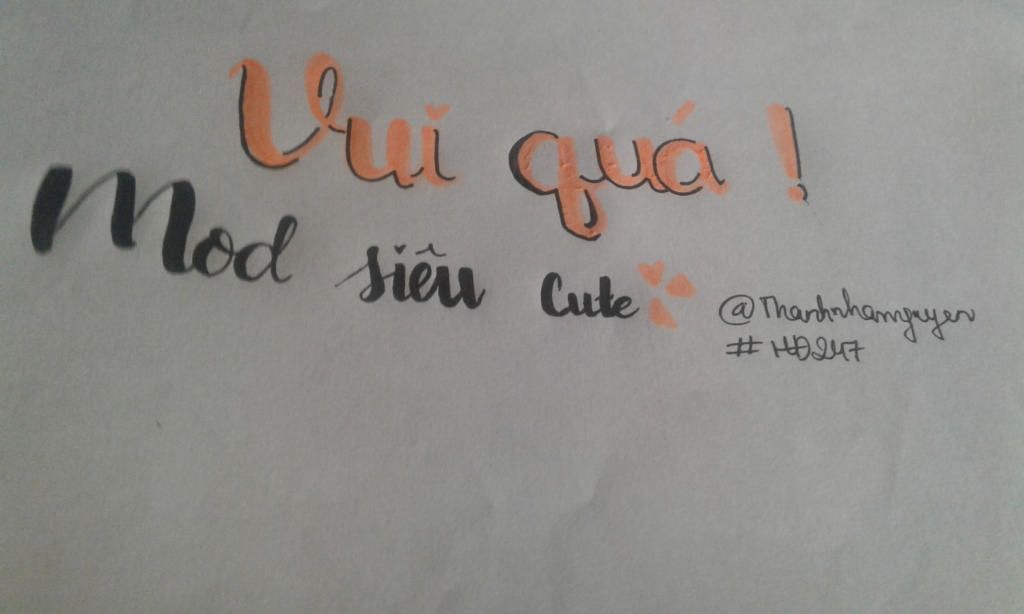 Vui quá !
Mod siêu Cute
@Thanhnhamnguyen
#HĐ247